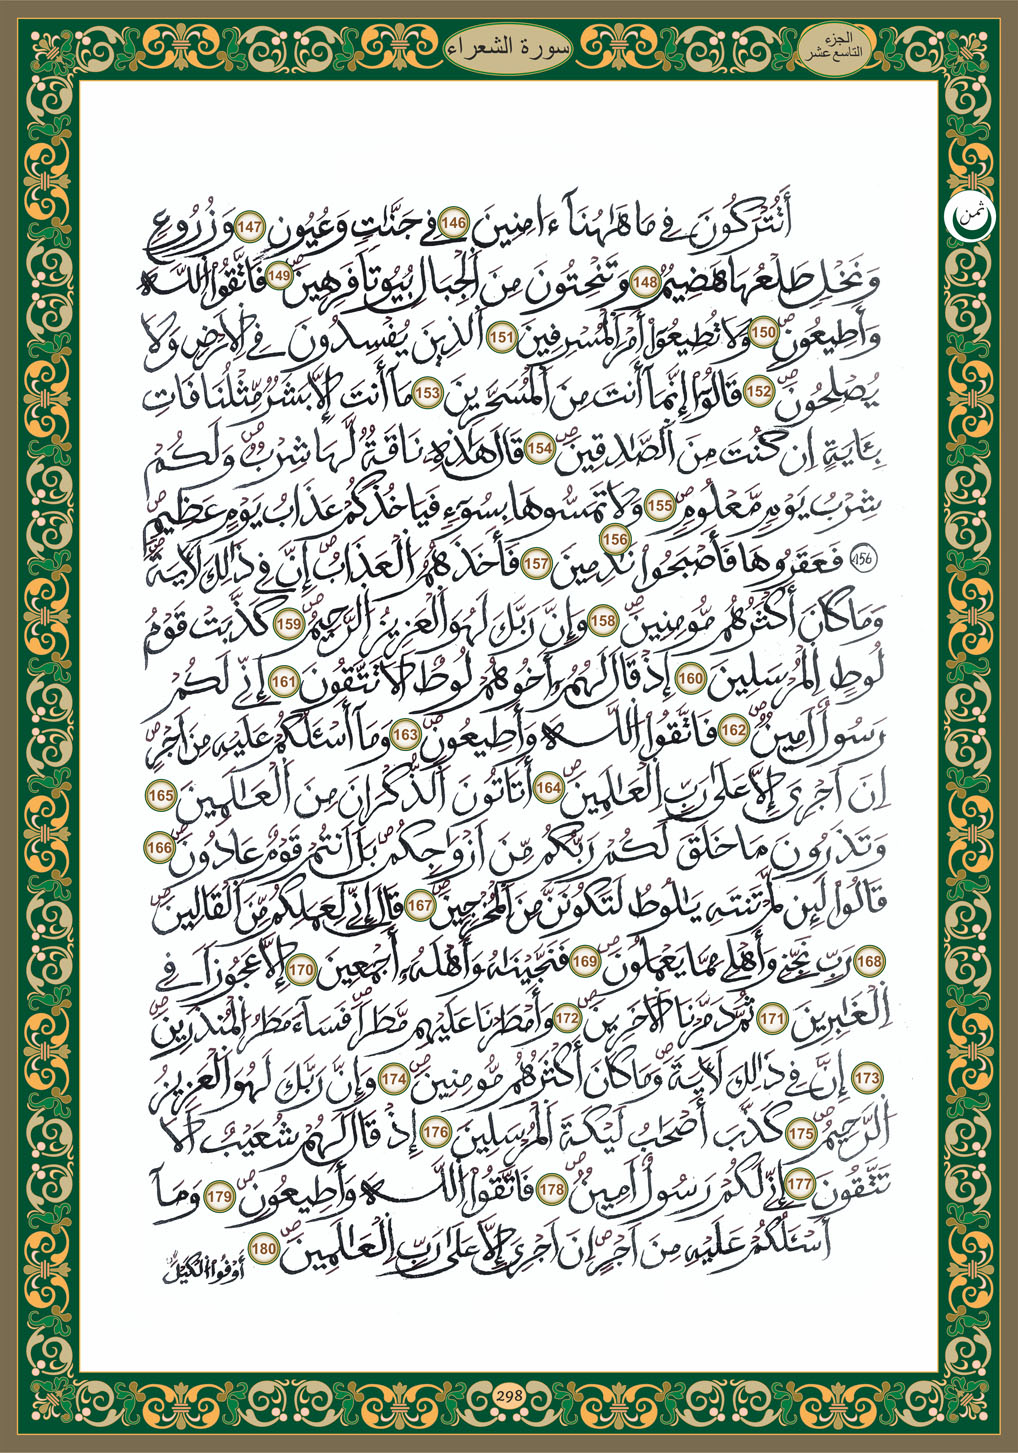 سورة الشعراء
الجزء
التاسع عشر
ثمن
أَتُتْرَكُونَ فِي مَا هَاهُنَآ ءَامِنِينَ 146 فِي جَنَّاتٍ وَعُيُونٍ 147 وَزُرُوعٍ
وَنَخْلٍ طَلْعُهَا هَضِيمٌ 148 وَتَنْحِتُونَ مِنَ اَلْجِبَالِ بُيُوتاً فَرِهِينَ 149 فَاتَّقُواْ اللَّهَ
وَأَطِيعُونِ 150 وَلَا تُطِيعُوٓاْ أَمْرَ اَلْمُسْرِفِينَ 151 اَلذِينَ يُفْسِدُونَ فِي اِلَارْضِ وَلَا
يُصْلِحُونَ 152 قَالُوٓاْ إِنَّمَآ أَنتَ مِنَ اَلْمُسَحَّرِينَ 153 مَآ أَنتَ إِلَّا بَشَرٌ مِّثْلُنَا فَاتِ
بِـَٔايَةٍ اِن كُنتَ مِنَ اَلصَّادِقِينَ 154 قَالَ هَاذِهِ نَاقَةٌ لَّهَا شِرْبٌ وَلَكُمْ
شِرْبُ يَوْمٍ مَّعْلُومٍ 155 وَلَا تَمَسُّوهَا بِسُوٓءٍ فَيَاخُذَكُمْ عَذَابُ يَوْمٍ عَظِيمٍ
156 فَعَقَرُوهَا فَأَصْبَحُواْ نَادِمِينَ 156 157 فَأَخَذَهُمُ اُلْعَذَابُ إِنَّ فِي ذَالِكَ لَأٓيَةً
وَمَا كَانَ أَكْثَرُهُم مُّومِنِينَ 158 وَإِنَّ رَبَّكَ لَهُوَ اَلْعَزِيزُ اُلرَّحِيمُ 159 كَذَّبَتْ قَوْمُ
لُوطٍ اِلْمُرْسَلِينَ 160 إِذْ قَالَ لَهُمُۥٓ أَخُوهُمْ لُوطٌ اَلَا تَتَّقُونَ 161 إِنِّي لَكُمْ
رَسُولٌ اَمِينٌ 162 فَاتَّقُواْ اُللَّهَ وَأَطِيعُونِ 163 وَمَآ أَسْـَٔلُكُمْ عَلَيْهِ مِنَ اَجْرٍ
اِنَ اَجْرِيَ إِلَّا عَلَىٰ رَبِّ اِلْعَالَمِينَ 164 أَتَاتُونَ اَلذُّكْرَانَ مِنَ اَلْعَالَمِينَ 165
وَتَذَرُونَ مَا خَلَقَ لَكُمْ رَبُّكُم مِّنَ اَزْوَاجِكُم بَلَ اَنتُمْ قَوْمٌ عَادُونَ 166
قَالُواْ لَئِن لَّمْ تَنتَهِ يَالُوطُ لَتَكُونَنَّ مِنَ اَلْمُخْرَجِينَ 167 قَالَ إِنِّي لِعَمَلِكُم مِّنَ اَلْقَالِينَ
168 رَبِّ نَجِّنِي وَأَهْلِي مِمَّا يَعْمَلُونَ 169 فَنَجَّيْنَاهُ وَأَهْلَهُۥٓ أَجْمَعِينَ 170 إِلَّا عَجُوزاً فِي
اِلْغَابِرِينَ 171 ثُمَّ دَمَّرْنَا اَلَاخَرِينَ 172 وَأَمْطَرْنَا عَلَيْهِم مَّطَراً فَسَآءَ مَطَرُ اُلْمُنذَرِينَ
173 إِنَّ فِي ذَالِكَ لَأٓيَةً وَمَا كَانَ أَكْثَرُهُم مُّومِنِينَ 174 وَإِنَّ رَبَّكَ لَهُوَ اَلْعَزِيزُ
اُلرَّحِيمُ 175 كَذَّبَ أَصْحَابُ لَيْكَةَ اَلْمُرْسَلِينَ 176 إِذْ قَالَ لَهُمْ شُعَيْبٌ اَلَا
تَتَّقُونَ 177 إِنِّي لَكُمْ رَسُولٌ اَمِينٌ 178 فَاتَّقُواْ اُللَّهَ وَأَطِيعُونِ 179 وَمَآ
أَسْـَٔلُكُمْ عَلَيْهِ مِنَ اَجْرٍ اِنَ اَجْرِيَ إِلَّا عَلَىٰ رَبِّ اِلْعَالَمِينَ 180
أَوْفُواْ اُلْكَيْلَ
298